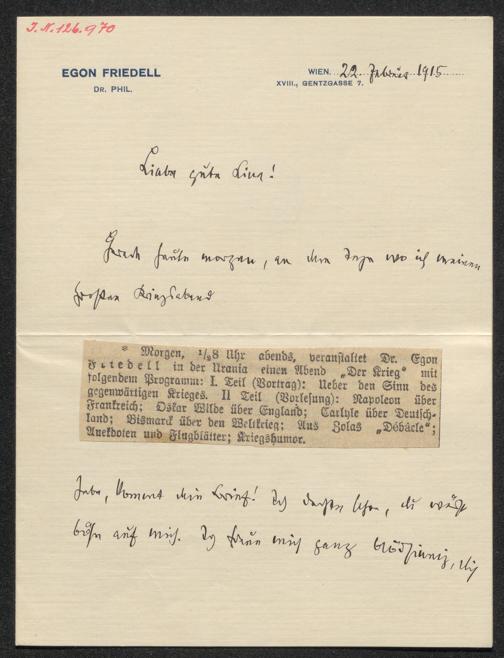 I. N. 126.970
EGON FRIEDELL
DR. PHIL.
WIEN, 22. Februar 1915
XVIII., GENTZGASSE 7.
Liebe gute Lina!
Gerade heute morgen, an dem Tage wo ich meinen
großen Kriegsabend
* Morgen, 1/28 Uhr abends, veranstaltet Dr. Egon
Friedell in der Urania einen Abend „Der Krieg“ mit
folgendem Programm: I. Teil (Vortrag): Ueber den Sinn des
gegenwärtigen Krieges. II Teil (Vorlesung): Napoleon über
Frankreich; Oskar Wilde über England; Carlyle über Deutsch-
land; Bismarck über den Weltkrieg; Aus Zolas „Débâcle“;
Anekdoten und Flugblätter; Kriegshumor.
habe, kommt dein Brief! Ich dachte schon, du wärst
böse auf mich. Ich freue mich ganz blödsinnig, dich